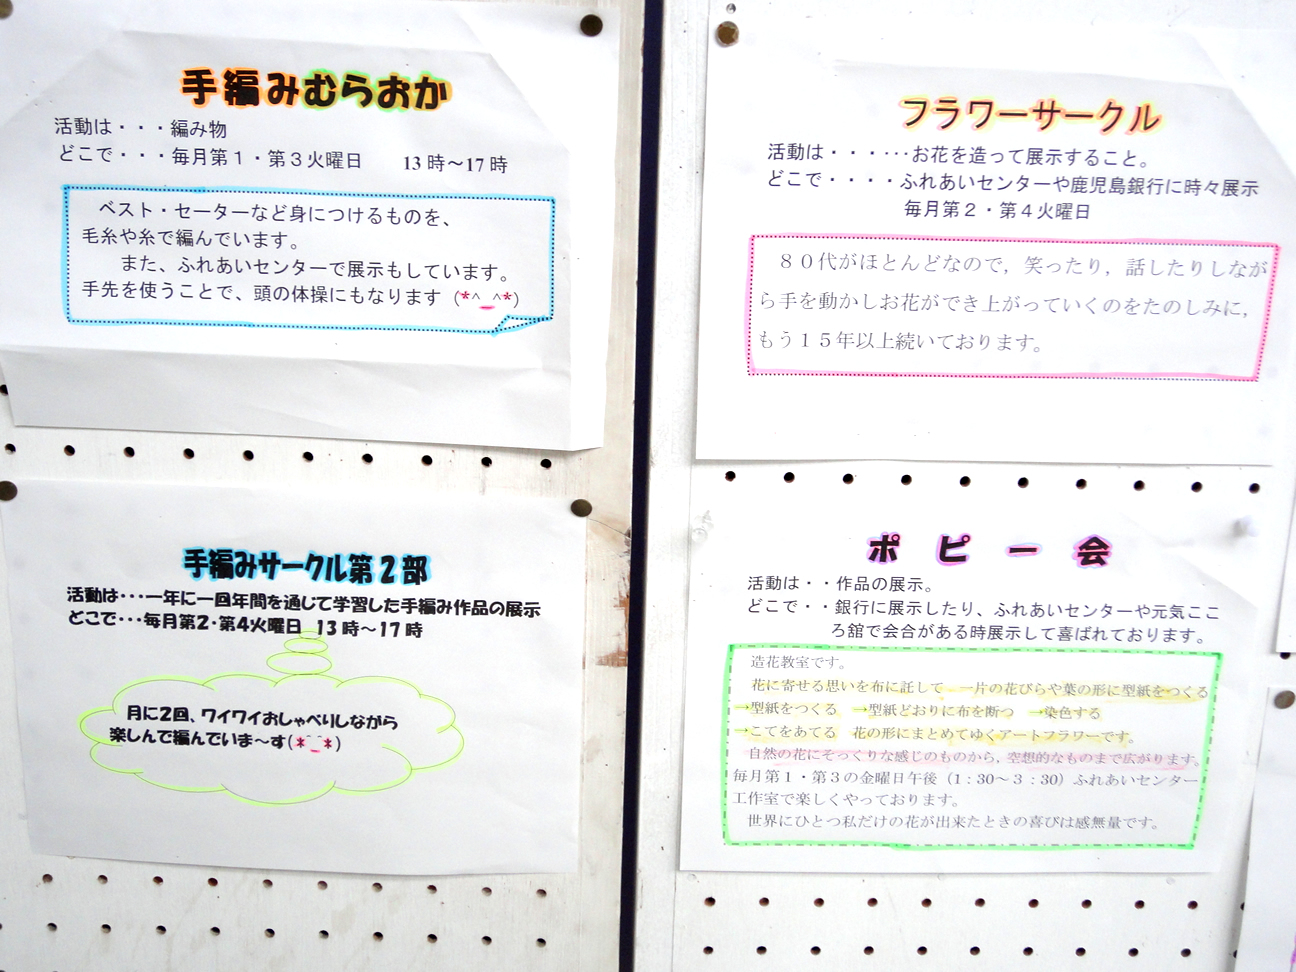 手編みむらおか
活動は・・・編み物
どこで・・・毎月第１・第３火曜日　　13時～17時
ベスト・セーターなど身につけるものを、
毛糸や糸で編んでいます。
また、ふれあいセンターで展示もしています。
手先を使うことで、頭の体操にもなります（*^_^*）
手編みサークル第２部
活動は・・・一年に一回年間を通じて学習した手編み作品の展示
どこで・・・毎月第2・第4火曜日　13時～17時
月に2回、ワイワイおしゃべりしながら
楽しんで編んでいま～す(*^_^*)
フラワーサークル
活動は・・・・・・お花を造って展示すること。
どこで・・・・ふれあいセンターや鹿児島銀行に時々展示
毎月第２・第４火曜日
８０代がほとんどなので，笑ったり，話したりしなが
ら手を動かしお花ができ上がっていくのをたのしみに，
もう１５年以上続いております。
ポピー会
活動は・・作品の展示。
どこで・・銀行に展示したり、ふれあいセンターや元気ここ
ろ舘で会合がある時展示して喜ばれております。
造花教室です。
花に寄せる思いを布に託して　一片の花びらや葉の形に型紙をつくる
→型紙をつくる　→型紙どおりに布を断つ　→染色する
→こてをあてる　花の形にまとめてゆくアートフラワーです。
自然の花にそっくりな感じのものから，空想的なものまで広がります。
毎月第１・第３の金曜日午後（1：30～３：30）ふれあいセンター
工作室で楽しくやっております。
世界にひとつ私だけの花が出来たときの喜びは感無量です。